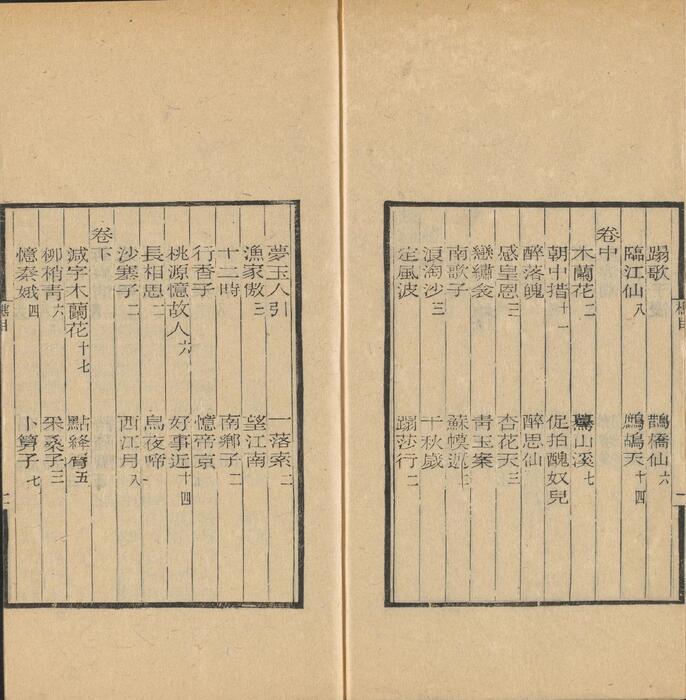 蹋歌 鵲橋仙六
臨江仙八 鷓鴣天十四
卷中
木蘭花二 驀山溪七
朝中措十一 促拍醜奴兒
醉落魄 醉思仙
感皇恩三 杏花天三
戀繡衾 青玉案
南歌子 蘇幕遮二
浪淘沙三 千秋歲
定風波 蹋莎行二
樵目
一
夢玉人引 一落索二
漁家傲三 望江南
十二時 南鄉子二
行香子 憶帝京
桃源憶故人六 好事近十四
長相思二 烏夜啼一
沙塞子二 西江月八
卷下
減字木蘭花十七 點絳脣五
柳梢青六 采桑子三
憶秦娥四 卜算子七
樵目
二